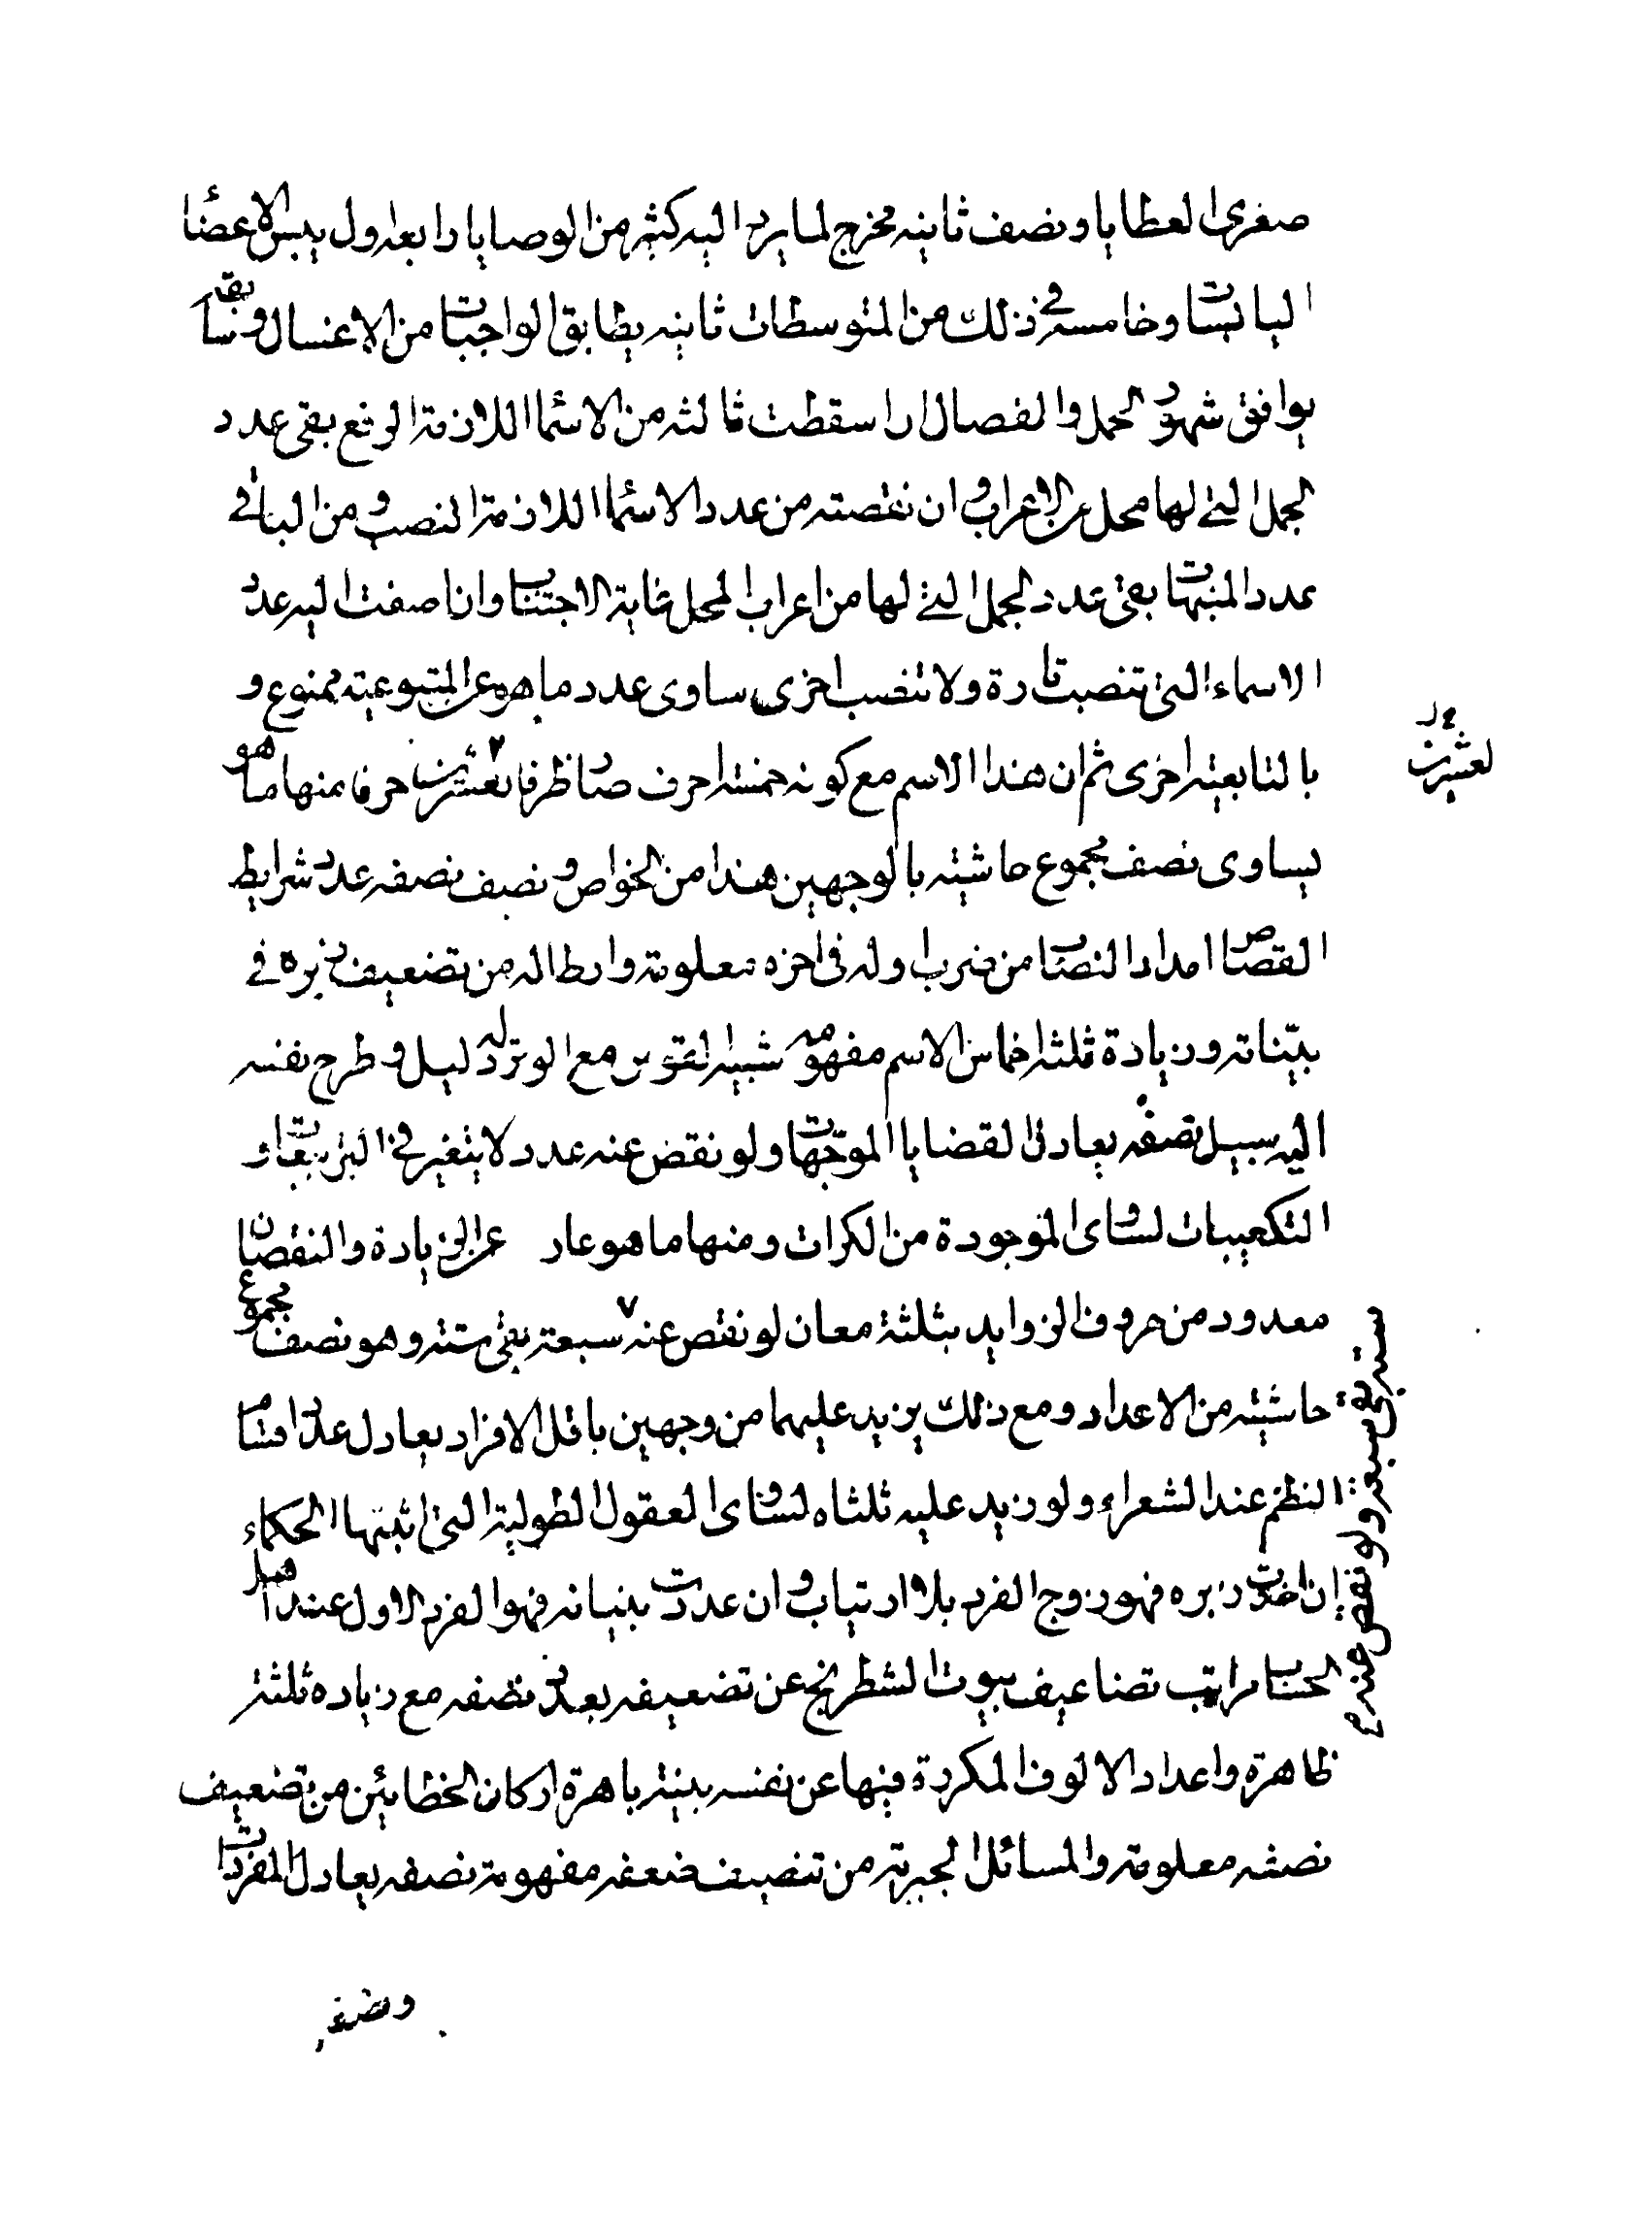 صغرى العطايا ونصف ثانيه مخرج لما يرد اليه كثير من الوصايا رابعه اول يبس الاعضاء
اليابسات وخامسه في ذلك من المتوسطات ثانيه يطابق الواجبات من الاغسال و
يوافق شهور الحمل والفصال اسقطت ثالثه من الاسماء اللازمة الرفع بقى عدد
الجمل التي لها محل من الاعراب وان نقصته من عدد الاسماء اللازمة النصب ومن الباقي
عدد المنبهات بقى عدد الجمل التي لها من اعراب المحل غاية الاجتناب وان اضفت اليه عدد
الاسماء التي تنصب تارة ولا تنصب اخرى ساوى عدد ما هو عن المتبوعية ممنوع و
بالتابعية اخرى ثم ان هذا الاسم مع كونه خمسة احرف صار ظرفا لعشرين حرفا منها ما هو
يساوى نصف مجموع حاشيته بالوجهين هذا من الخواص ونصف نصفه عدد شرايط
القصاص امداد النصاب من ضرب اوله في اخره معلومة وارطاله من تضعيف زبره في
بيناته وزيادة ثلثه اخماس الاسم مفهومه شبيه القوس مع الوتر له دليل وطرح نفسه
اليه سبيل نصفه يعادل القضايا الموجهات ولو نقض عنه عدد لا يتغير في التربيعات و
التكعيبات لساوى الموجودة من الكرات ومنها ما هو عار عن الزيادة والنقصان
معدود من حروف الزوايد بثلثة معان لو نقص عنه سبعة بقى ستة وهو نصف مجموع
حاشيته من الاعداد ومع ذلك يزيد عليهما من وجهين باقل الافراد يعادل عدد اقسام
النظم عند الشعراء ولو زيد عليه ثلثاه لساوى العقول الطولية التي اثبتها الحكماء
ان اخذت زبره فهو زوج الفرد بلا ارتياب وان عددت بينياته فهو الفرد الاول عند اهل
الحساب مراتب تضاعيف بيوت الشطرنج عن تضعيفه بعد نصفه مع زياده ثلثة
ظاهرة واعداد الالوف المكررة فيها عن نفسه بينة باهرة اركان الخطايين من تضعيف
نصفه معلومة والمسائل الجبرية من تنصيف ضعفه مفهومة نصفه يعادل المفردات
لعشرين
ستة بقى سبعة ولو نقص عنه
ونصف